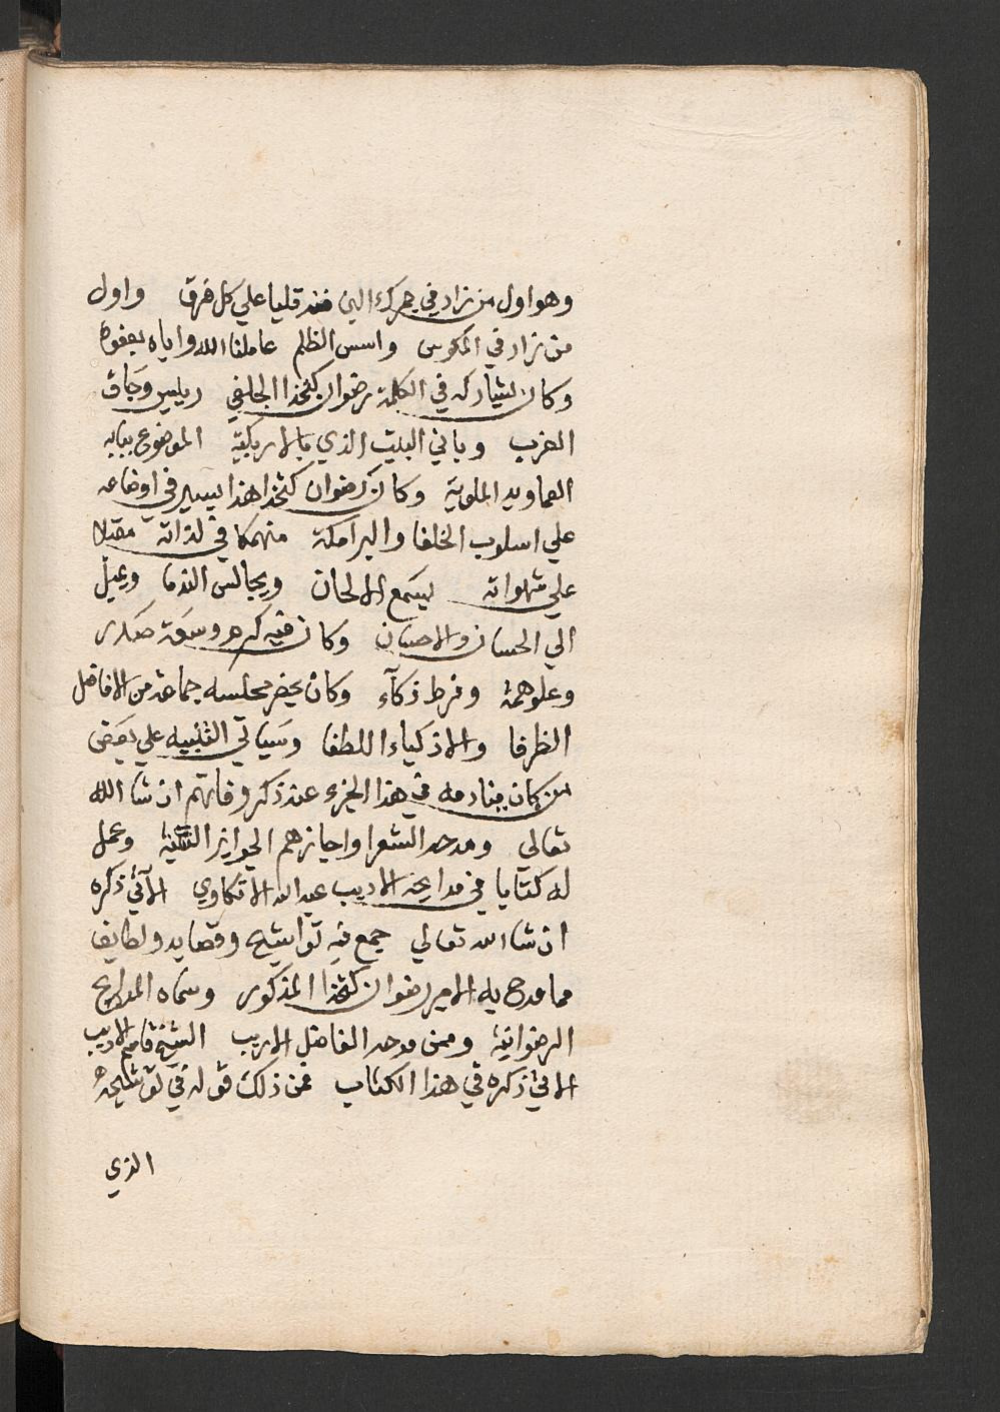 وهو اول من زاد في جمرك البن فضه قليا علي كل فرق واول
من زاد في المكوس واسس الظلم عاملنا الله واياه بعفوه
وكان يشاركه في الكلمة رضوان كتخدا الجلفي رييس وجاق
العزب وباني البيت الذي بالازبكية الموضوع ببابه
العماويد الملوية وكان رضوان كتخدا هذا يسير في اوضاعه
علي اسلوب الخلفا والبرامكة منهمكا في لذاته مقبلا
علي شهواته يسمع الالحان ويجالس الندما ويميل
الي الحسان والاحسان وكان فيه كرم وسعة صدر
وعلو همة وفرط ذكآء وكان يحضر مجلسه جماعة من الافاضل
الظرفا والاذكياء اللطفا وسياتي التنبيه علي بعض
من كان ينادمه في هذا الجزء عند ذكر وفاتهم ان شا الله
تعالي ومدحه الشعرا واجازهم الجوايز السنية وعمل
له كتابا في مدايحه الاديب عبد الله الاتكاوي الآتي ذكره
ان شا الله تعالي جمع فيه تواشيح وقصايد ولطايف
مما مدح به الامير رضوان كتخدا المذكور وسماه المدايح
الرضوانية وممن مدحه الفاضل الاريب الشيخ قاسم الاديب
الاتي ذكره في هذا الكتاب فمن ذلك قوله في توشيحه
الذي